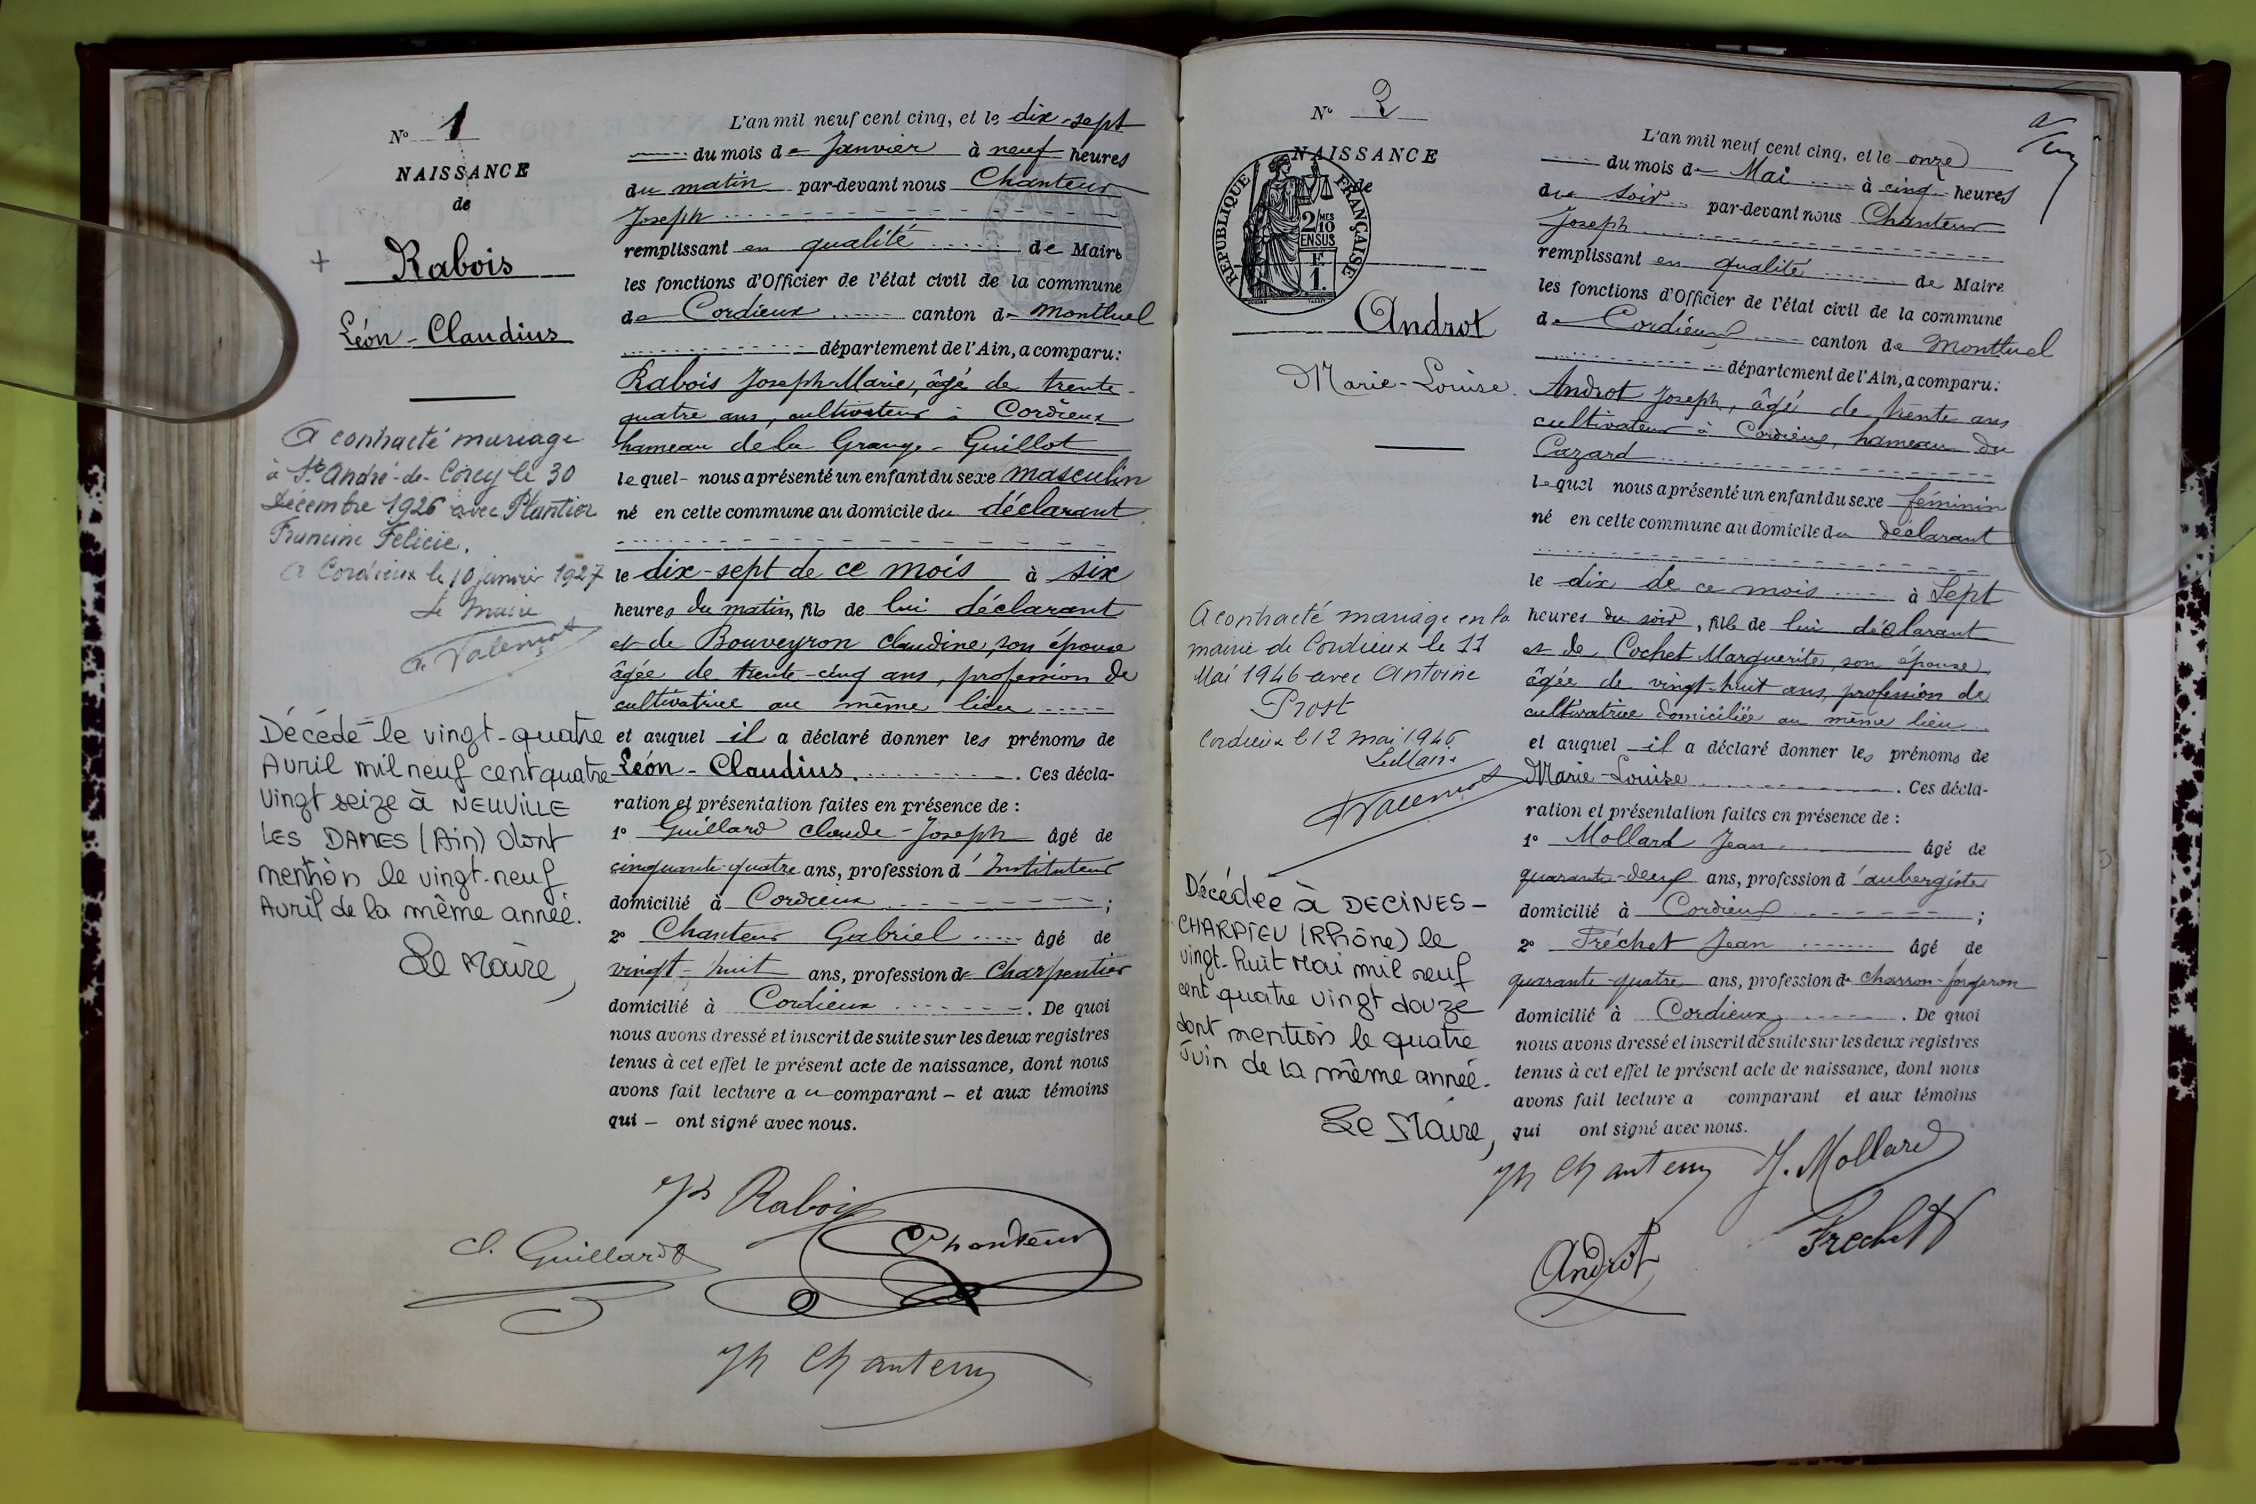 N° 1
NAISSANCE
de
Rabois
Léon-Claudius
A contracté mariage
à St André-de-Corcy le 30
Décembre 1926 avec Plantier
Francine Félicie.
A Cordieux le 10 janvier 1927
Le Maire
Décédé le vingt-quatre
Avril mil neuf cent quatre
vingt seize à NEUVILLE
LES DAMES (Ain) dont
mention le vingt-neuf
Avril de la même année.
Le Maire,
L'an mil neuf cent cinq, et le dix-sept
du mois de Janvier à neuf heures
du matin par-devant nous Chanteur
Joseph
remplissant en qualité de Maire
les fonctions d'Officier de l'état civil de la commune
de Cordieux canton de Montluel
département de l'Ain, a comparu:
Rabois Joseph-Marie, âgé de trente-
quatre ans, cultivateur à Cordieux
hameau de la Grange-Guillot
lequel- nous a présenté un enfant du sexe masculin
né en cette commune au domicile du déclarant
le dix-sept de ce mois à six
heures du matin, fils de lui déclarant
et de Bouveyron Claudine, son épouse
âgée de trente-cinq ans, profession de
cultivatrice au même lieu
et auquel il a déclaré donner les prénoms de
Léon-Claudius. Ces décla-
ration et présentation faites en présence de :
1° Guillard Claude-Joseph âgé de
cinquante-quatre ans, profession d'Instituteur
domicilié à Cordieux ;
2° Chanteur Gabriel âgé de
vingt-huit ans, profession de Charpentier
domicilié à Cordieux . De quoi
nous avons dressé et inscrit de suite sur les deux registres
tenus à cet effet le présent acte de naissance, dont nous
avons fait lecture au comparant - et aux témoins
qui - ont signé avec nous.
Jh Rabois
Cl. Guillard
Chanteur
Jh Chanteur
N° 2
NAISSANCE
de
REPUBLIQUE FRANÇAISE
2/10 MES
EN SUS
F.
1.
Androt
Marie-Louise.
A contracté mariage en la
mairie de Cordieux le 11
Mai 1946 avec Antoine
Prost
Cordieux le 12 mai 1946
Le Maire
Décédée à DECINES-
CHARPIEU (Rhône) le
vingt-huit Mai mil neuf
cent quatre vingt douze
dont mention le quatre
Juin de la même année.
Le Maire,
L'an mil neuf cent cinq, et le onze
du mois de Mai à cinq heures
du soir par-devant nous Chanteur
Joseph
remplissant en qualité de Maire
les fonctions d'Officier de l'état civil de la commune
de Cordieux canton de Montluel
département de l'Ain, a comparu:
Androt Joseph, âgé de trente ans
cultivateur à Cordieux, hameau du
Cazard
lequel nous a présenté un enfant du sexe féminin
né en cette commune au domicile du déclarant
le dix de ce mois à Sept
heures du soir, fille de lui déclarant
et de Cochet Marguerite, son épouse,
âgée de vingt-huit ans, profession de
cultivatrice domiciliée au même lieu
et auquel il a déclaré donner les prénoms de
Marie-Louise . Ces décla-
ration et présentation faites en présence de :
1° Mollard Jean âgé de
quarante-deux ans, profession d'aubergiste
domicilié à Cordieux ;
2° Fréchet Jean âgé de
quarante-quatre ans, profession de charron-forgeron
domicilié à Cordieux . De quoi
nous avons dressé et inscrit de suite sur les deux registres
tenus à cet effet le présent acte de naissance, dont nous
avons fait lecture a comparant et aux témoins
qui ont signé avec nous.
Jh Chanteur J. Mollard
Androt
Frechet